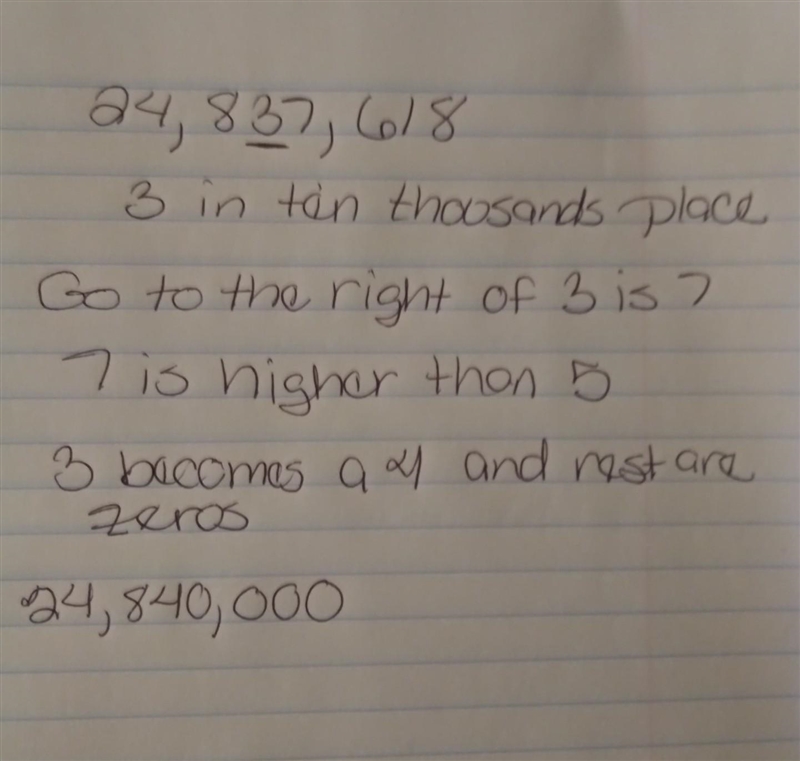 24,837,618
3 in ten thousands place
Go to the right of 3 is 7
7 is higher than 5
3 becomes a 4 and rest are
zeros
24,840,000